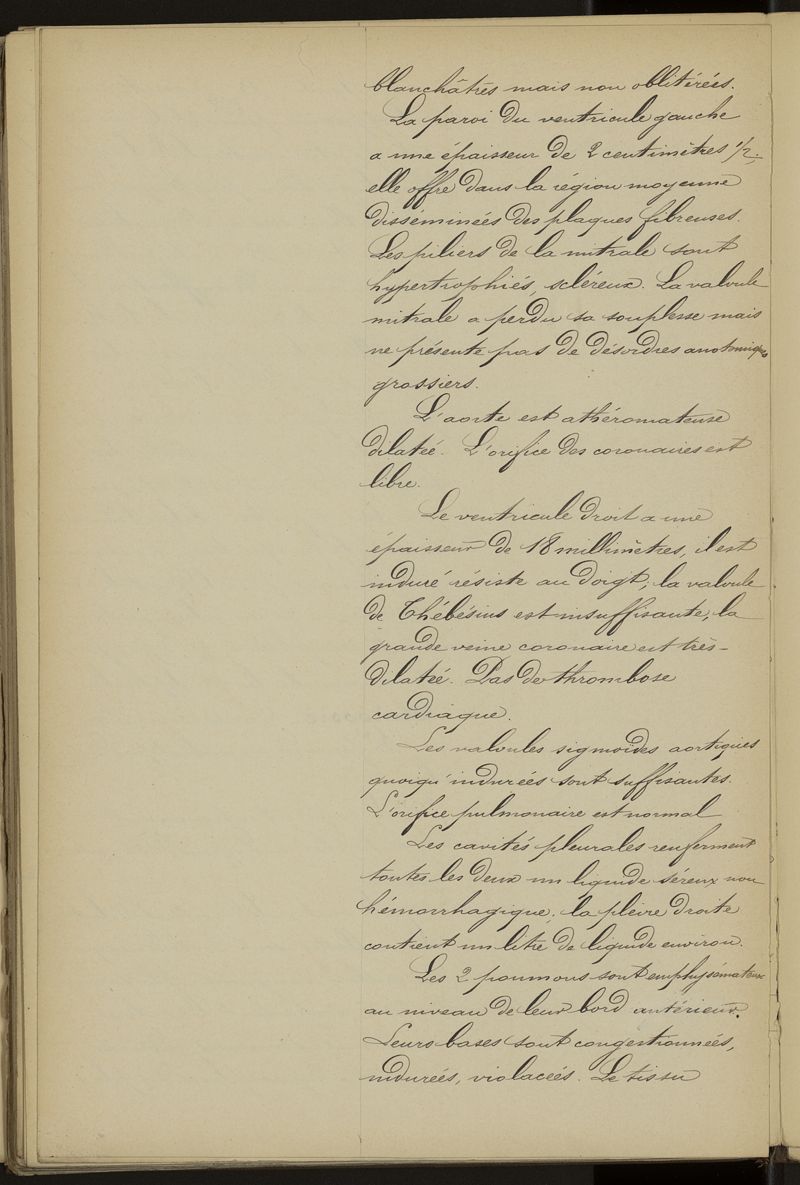 blanchâtres mais non oblitérées.
La paroi du ventricule gauche
a une épaisseur de 2 centimètres 1/2;
elle offre dans la région moyenne
disséminées des plaques fibreuses.
Les piliers de la mitrale sont
hypertrophiés, scléreux. La valvule
mitrale a perdu sa souplesse mais
ne présente pas de désordres anatomiques
grossiers.
L'aorte est athéromateuse
dilatée. L'orifice des coronaires est
libre.
Le ventricule droit a une
épaisseur de 18 millimètres, il est
induré résiste au doigt; la valvule
de Thébésius est insuffisante, la
grande veine coronaire est très-
dilatée. Pas de thrombose
cardiaque.
Les valvules sigmoïdes aortiques
quoiqu'indurées sont suffisantes.
L'orifice pulmonaire est normal
Les cavités pleurales renferment
toutes les deux un liquide séreux non
hémorrhagique; la plèvre droite
contient un litre de liquide environ.
Les 2 poumons sont emphysémateux
au niveau de leur bord antérieur.
Leurs bases sont congestionnées,
indurées, violacées. Le tissu